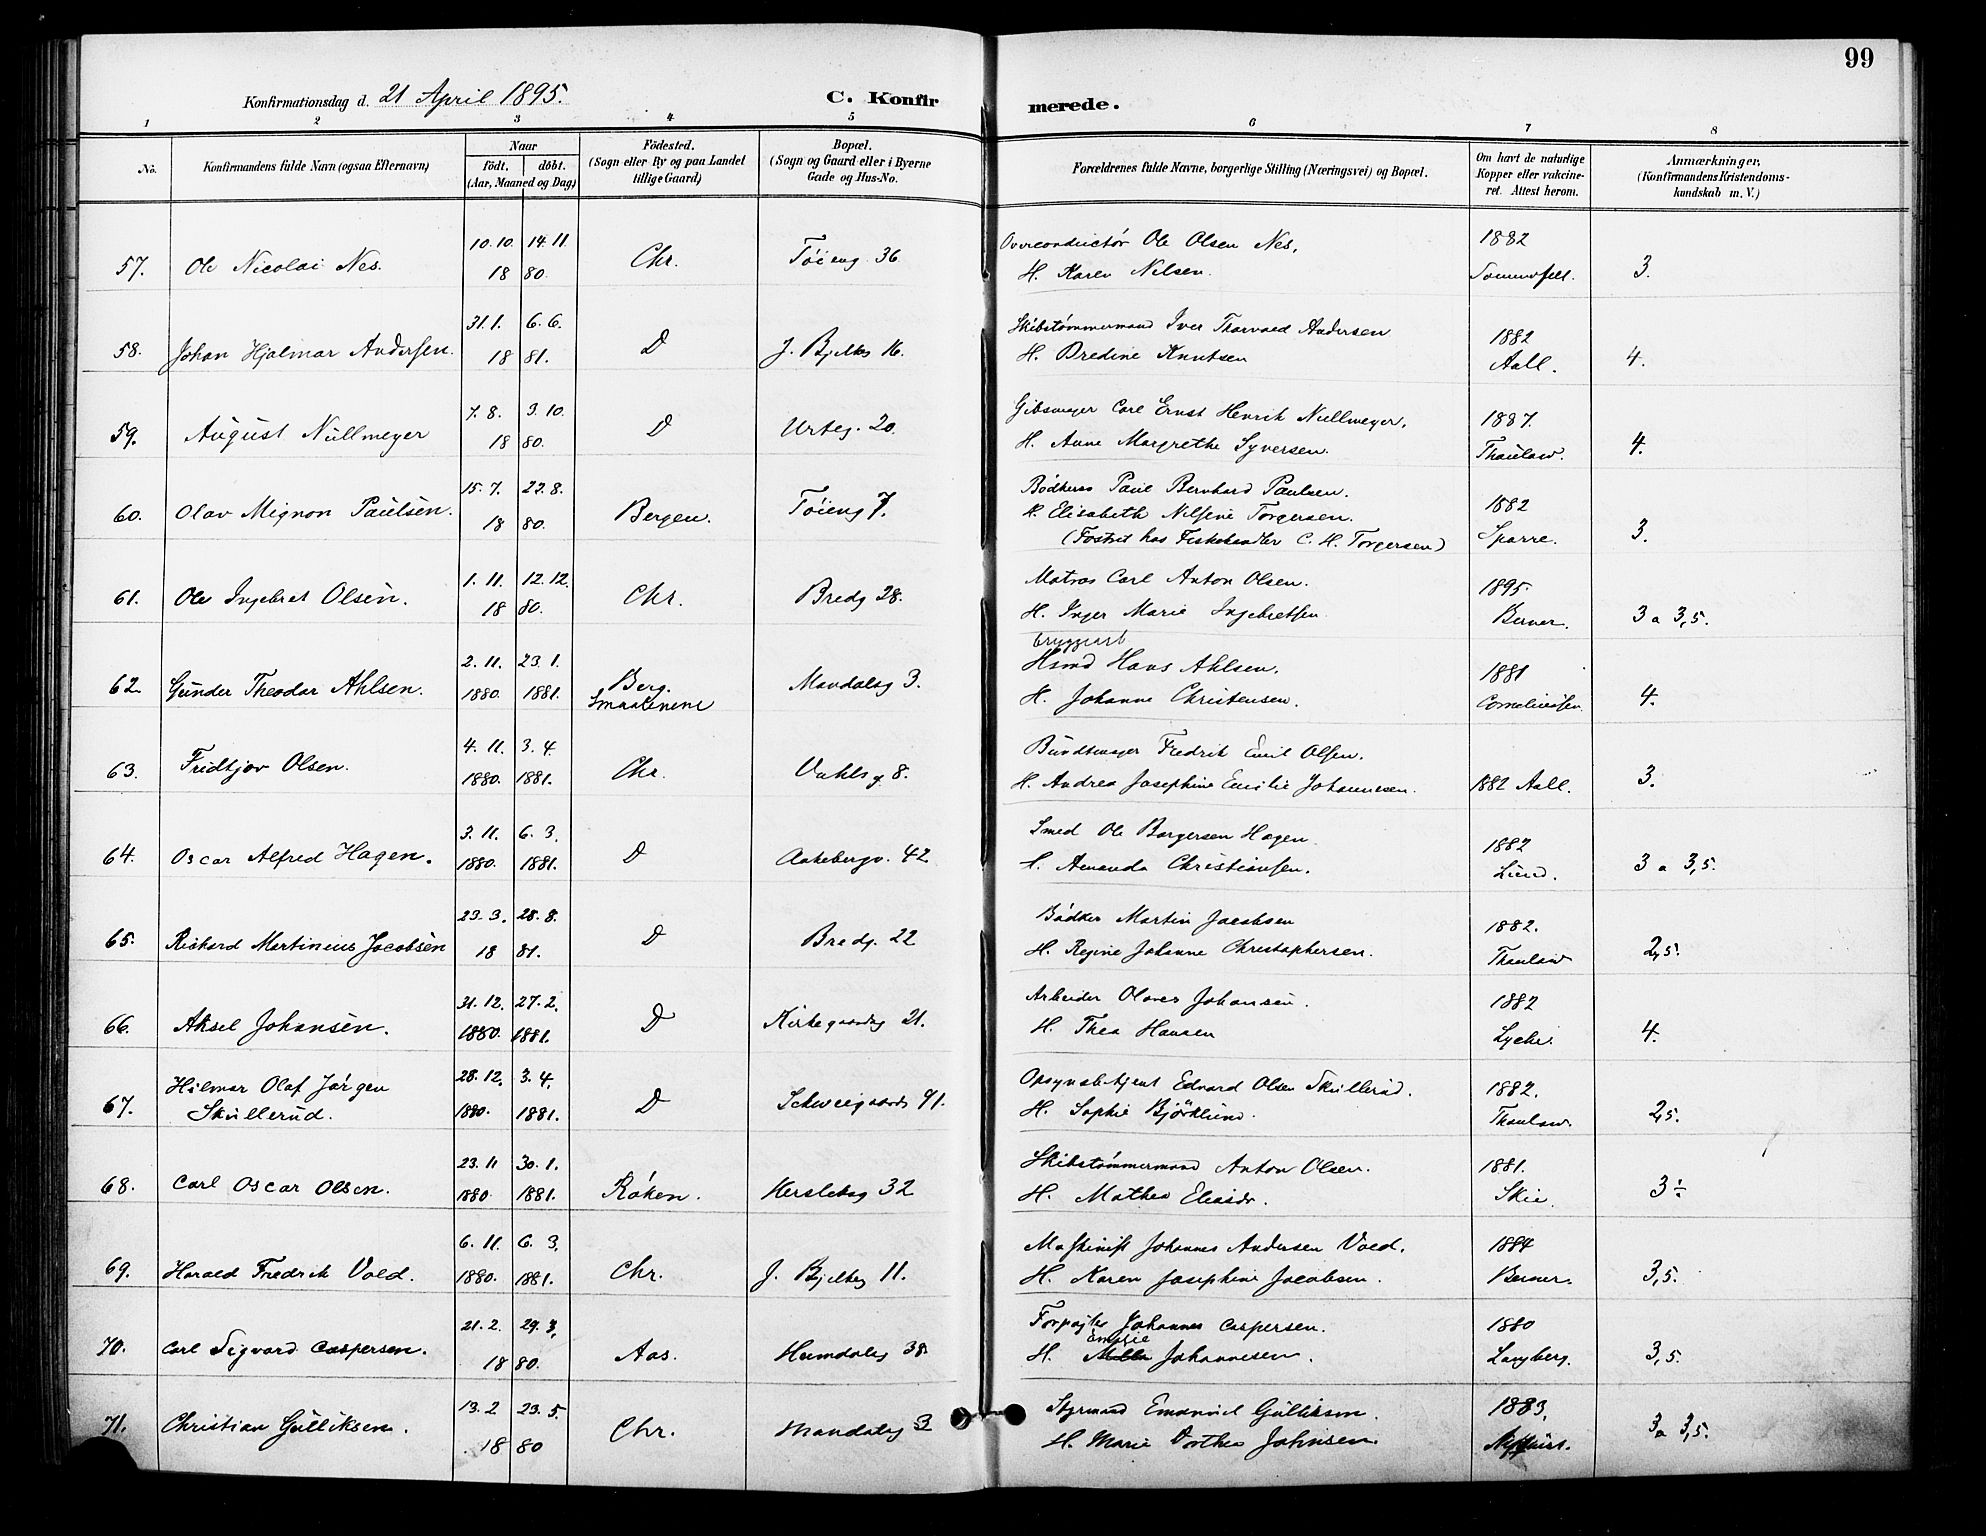 99
Konfirmationsdag d. 21 April 1895. C. Konfirmerede.
1 2 3 4 5 6 7 8
No. Konfirmandens fulde Navn (ogsaa Efternavn) Naar født, døbt. (Aar, Maaned og Dag) Fødested. (Sogn eller By og paa Landet tillige Gaard) Bopæl. (Sogn og Gaard eller i Byerne Gade og Hus-No. Forældrenes fulde Navne, borgerlige Stilling (Næringsvei) og Bopæl. Om havt de naturlige Kopper eller vakcineret. Attest herom. Anmærkninger, (Konfirmandens Kristendomskundskab m. V.)
10.10. 14.11. Overconductør Ole Olsen Nes, 1882
57. Ole Nicolai Nes. 18 80. Chr. Tøieng. 36 H. Karen Nilsen. Sommerfelt. 3.
31.1. 6.6. Skibstømmermand Iver Thorvald Andersen 1882
58. Johan Hjalmar Andersen. 18 81. D J. Bjelkes 16. H. Bredine Knutsen Aall. 4.
7.8. 3.10. Gibsmager Carl Ernst Henrik Nullmeyer, 1887.
59. August Nullmeyer 18 80. D Urteg. 20. H. Anne Margrethe Syversen. Thaulow. 4.
15.7. 22.8. Bødkersv Paul Bernhard Paulsen. 1882
60. Olav Mignon Paulsen. 18 80. Bergen. Tøieng 7. H. Elisabeth Nilsine Torgersen. Sparre. 3.
(Fostret hos Fiskehandler C. H. Torgersen)
1.11. 12.12. Matros Carl Anton Olsen. 1895.
61. Ole Ingebret Olsen. 18 80. Chr. Bredg 28. H. Inger Marie Ingebretsen Berner. 3 a 3,5.
bryggearb
2.11. 23.1. Hsmd Hans Ahlsen, 1881
62. Gunder Theodor Ahlsen. 1880. 1881. Berg. Smaalenene Mandalsg 3. H. Johanne Christensen. Corneliussen 4.
4.11. 3.4. Bundtmager Fredrik Emil Olsen.
63. Fridtjov Olsen. 1880. 1881. Chr. Vahlsg 8. H. Andrea Josephine Emilie Johannesen. 1882 Aall. 3.
3.11. 6.3. Smed Ole Borgersen Hagen 1882
64. Oscar Alfred Hagen. 1880. 1881. D Aakebergv. 42 H. Amanda Christiansen. Lund. 3 a 3,5.
23.3. 28.8. Bødker Martin Jacobsen 1882.
65. Richard Martinius Jacobsen 18 81. D Bredg. 22 H. Regine Johanne Christophersen. Thaulow 2,5.
31.12. 27.2. Arbeider Olaves Johansen. 1882
66. Aksel Johansen. 1880. 1881. D Kirkegaardsg 21. H. Thea Hansen Lyche. 4.
Hilmar Olaf Jørgen 28.12. 3.4. Opsynsbetjent Edvard Olsen Skullerud. 1882.
67. Skullerud. 1880. 1881. D Schweigaards 91. H. Sophie Bjørklund. Thaulow. 2,5.
23.11 30.1. Skibstømmermand Anton Olsen. 1881.
68. Carl Oscar Olsen. 1880 1881. Røken. Herslebsg 32 H. Mathea Eliasdr. Skie. 3÷
6.11. 6.3. Maskinist Johannes Andersen Vold. 1884
69. Harald Fredrik Vold. 1880. 1881. Chr. J. Bjelkes 11. H. Karen Josephine Jacobsen. Berner. 3,5.
21.2. 29.3. Forpagter Johannes Caspersen. 1880
70. Carl Sigvard Caspersen. 18 80. Aas. Heimdalsg 38. H. Emilie Johannesen. Langberg. 3,5.
13.2 23.5. Styrmand Emanuel Gulliksen. 1883,
71. Christian Gulliksen. 18 80 Chr. Mandalsg 3 H. Marie Dorthea Johnsen. 3 a 3,5.